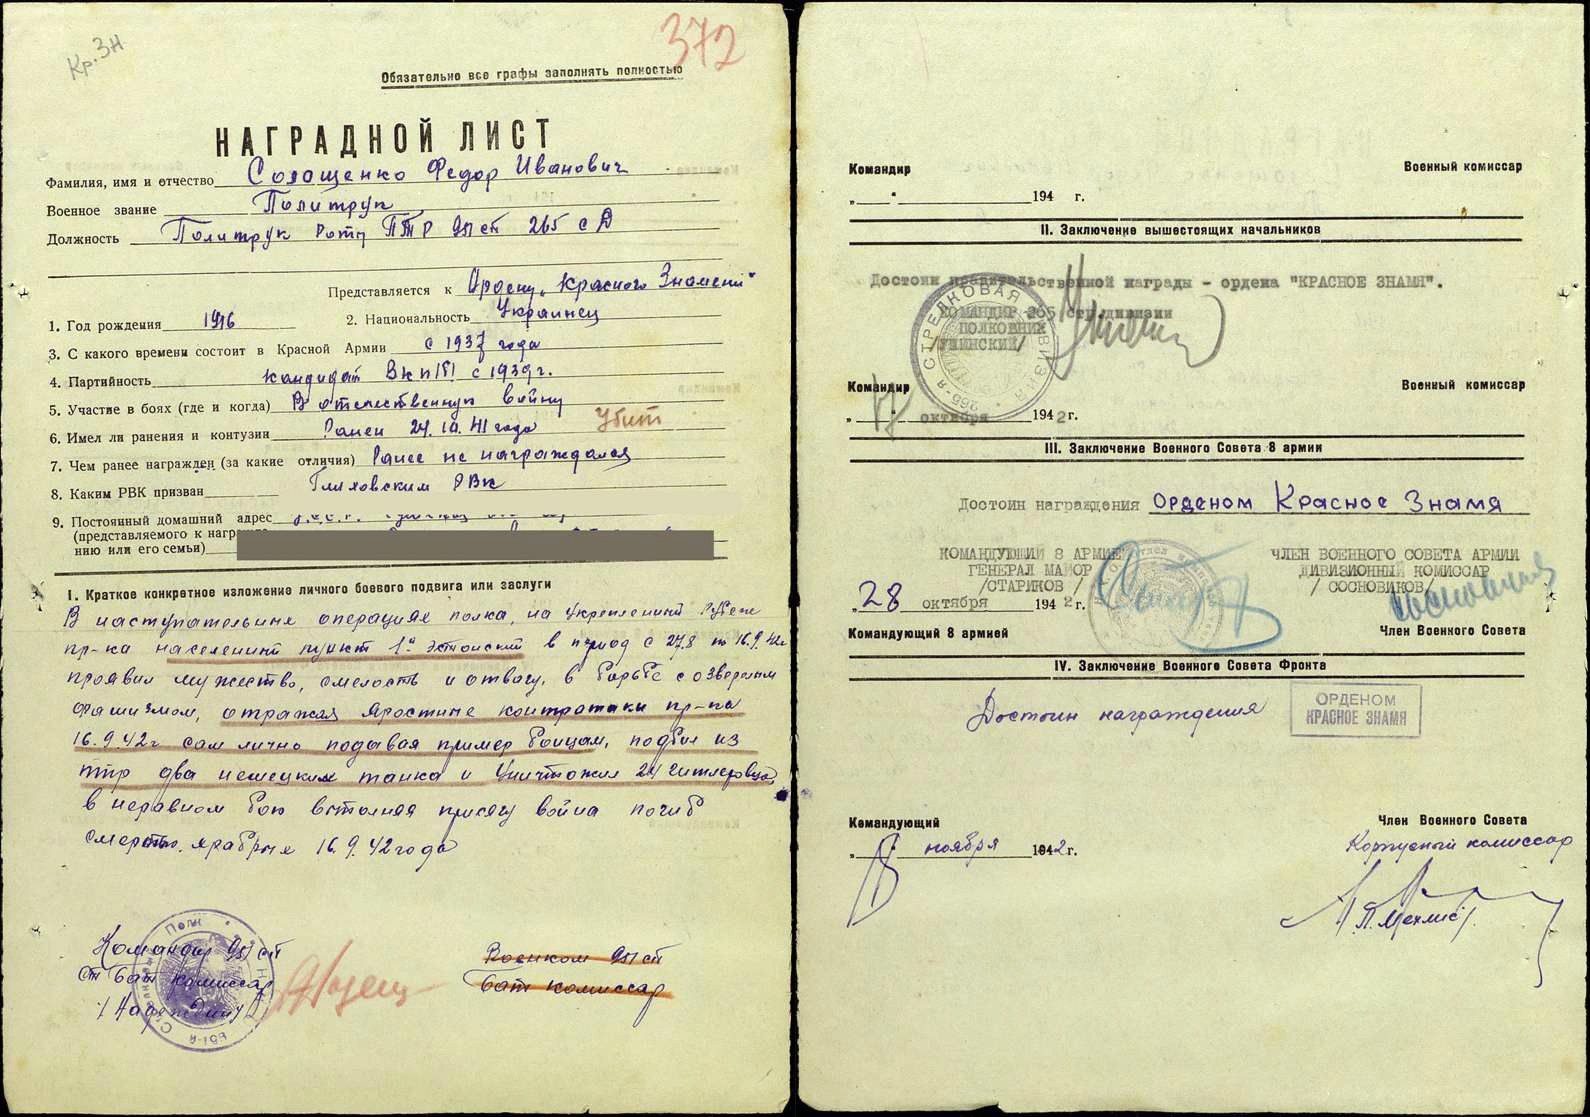 Кр. ЗН
372
Обязательно все графы заполнять полностью
НАГРАДНОЙ ЛИСТ
Фамилия, имя и отчество Солащенко Федор Иванович
Военное звание Политрук
Должность Политрук Роты ПТР 951 сп 265 с Д
Представляется к Ордену „Красного Знамени"
1. Год рождения 1916 2. Национальность Украинец
3. С какого времени состоит в Красной Армии с 1937 года
4. Партийность кандидат ВКП/б/ с 1939 г.
5. Участие в боях (где и когда) В отечественную войну
6. Имел ли ранения и контузии Ранен 24.10.41 года Убит
7. Чем ранее награжден (за какие отличия) Ранее не награждался
8. Каким РВК призван Глуховским РВК
9. Постоянный домашний адрес
(представляемого к награжде-
нию или его семьи)
I. Краткое конкретное изложение личного боевого подвига или заслуги
В наступательных операциях полка, на укреплений
пр-ка населенный пункт 1й Эстонский в период с 27.8 по 16.9.42г
проявил мужество, смелость и отвагу, в борьбе с озверелым
фашизмом, отражая яростные контратаки пр-ка
16.9.42г сам лично подавая пример бойцам, подбил из
птр два немецких танка и уничтожил 24 гитлеровца,
в неравном бою выполняя присягу война погиб
смертью храбрых 16.9.42 года
Командир 951 сп
ст бат комиссар
Военком 951 сп
Бат комиссар
Командир Военный комиссар
„ " 194 г.
II. Заключение вышестоящих начальников
Достоин правительственной награды - ордена "КРАСНОЕ ЗНАМЯ".
КОМАНДИР 265 стр.дивизии
ПОЛКОВНИК
/УШИНСКИЙ/
Командир Военный комиссар
„17" октября 1942г.
III. Заключение Военного Совета 8 армии
Достоин награждения Орденом Красное Знамя
КОМАНДУЮЩИЙ 8 АРМИЕЙ ЧЛЕН ВОЕННОГО СОВЕТА АРМИИ
ГЕНЕРАЛ МАЙОР ДИВИЗИОННЫЙ КОМИССАР
/СТАРИКОВ/ /СОСНОВИКОВ/
„28 октября 1942г.
Командующий 8 армией Член Военного Совета
IV. Заключение Военного Совета Фронта
Достоин награждения ОРДЕНОМ
КРАСНОЕ ЗНАМЯ
Командующий Член Военного Совета
Корпусный комиссар
„8" ноября 1942г.
Л. Мехлис